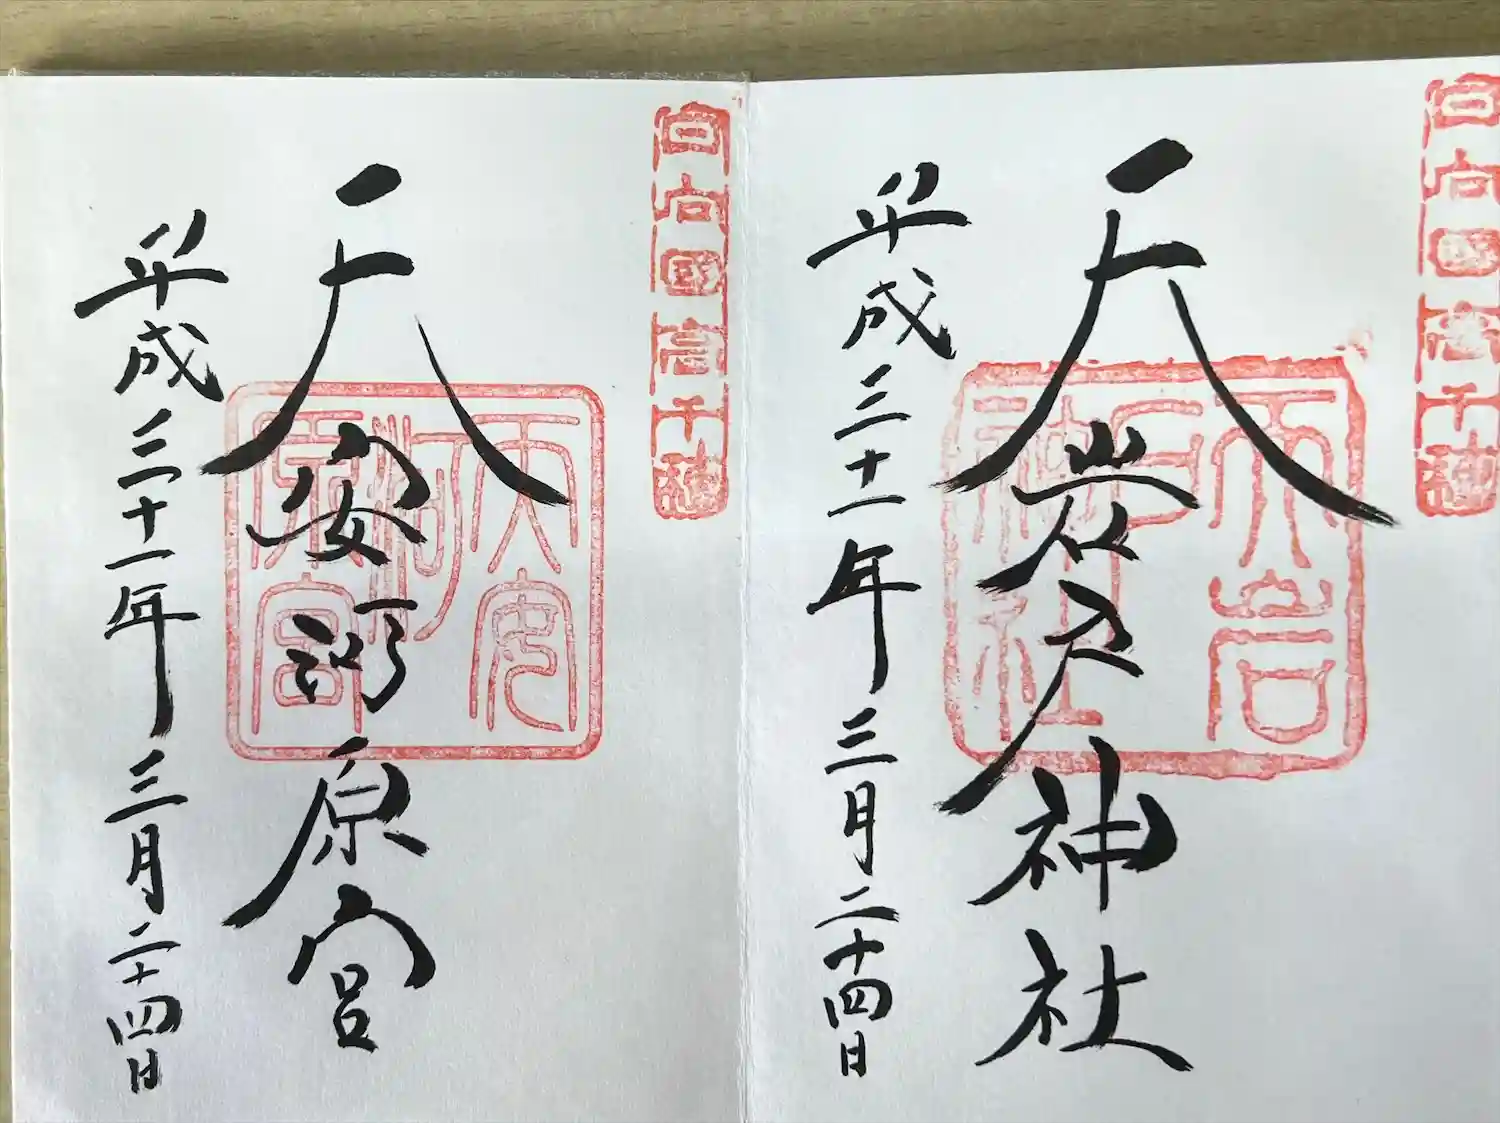 日向國高千穂
天岩戸神社
天岩戸神社
平成三十一年三月二十四日
日向國高千穂
天安河原宮
天安河原宮
平成三十一年三月二十四日